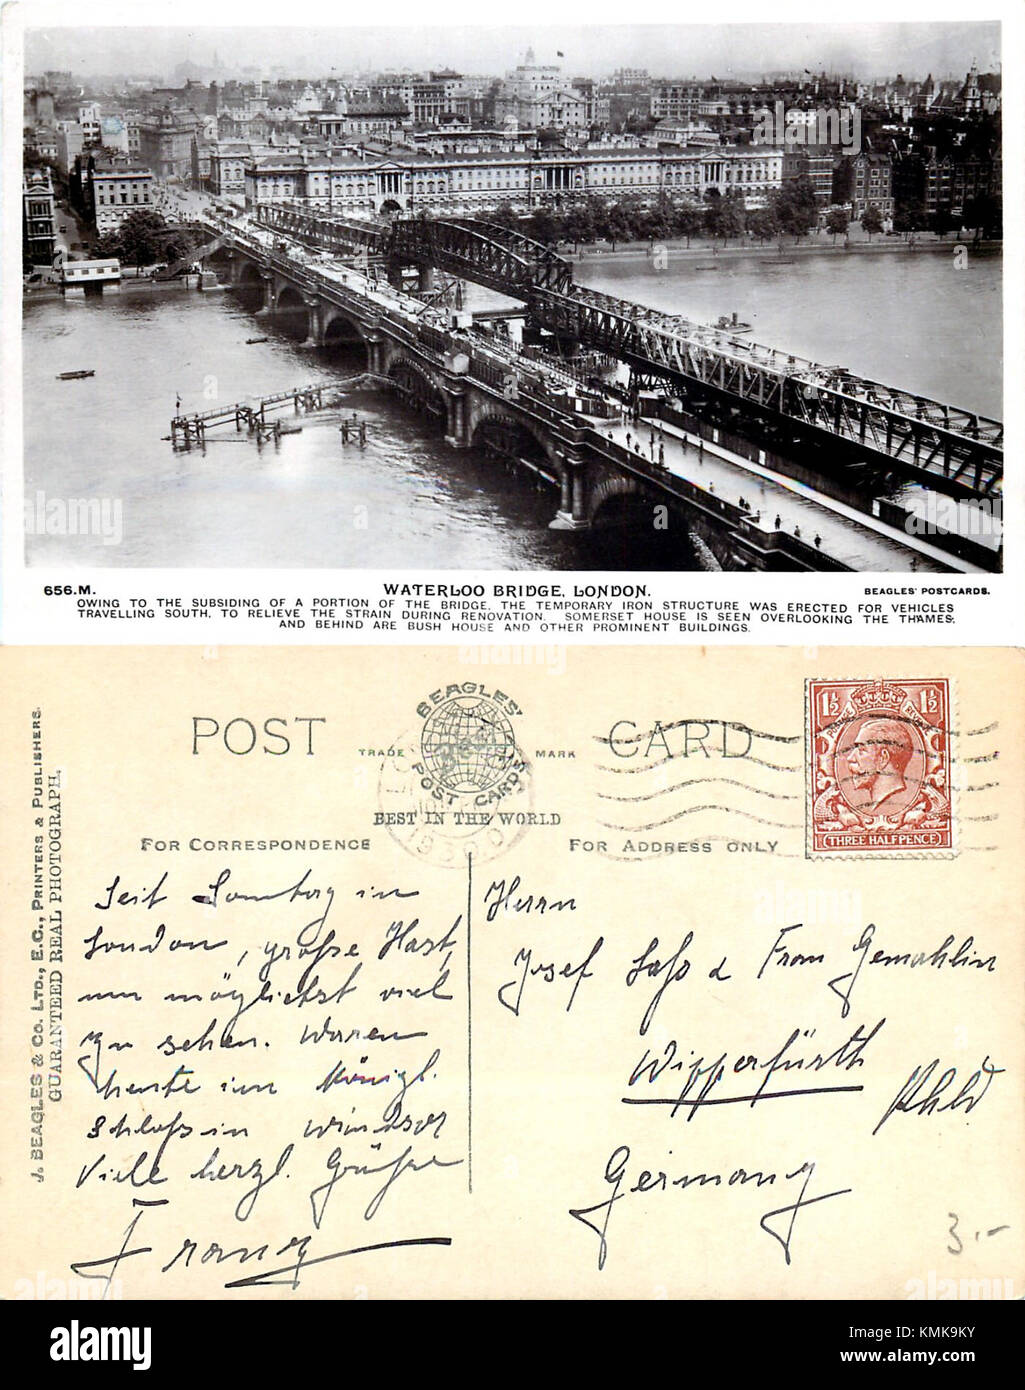 656.M.
WATERLOO BRIDGE, LONDON.
BEAGLES' POSTCARDS.
OWING TO THE SUBSIDING OF A PORTION OF THE BRIDGE, THE TEMPORARY IRON STRUCTURE WAS ERECTED FOR VEHICLES
TRAVELLING SOUTH, TO RELIEVE THE STRAIN DURING RENOVATION. SOMERSET HOUSE IS SEEN OVERLOOKING THE THAMES,
AND BEHIND ARE BUSH HOUSE AND OTHER PROMINENT BUILDINGS.
J. BEAGLES & CO. LTD., E.C., PRINTERS & PUBLISHERS.
GUARANTEED REAL PHOTOGRAPH.
POST CARD
BEAGLES'
TRADE MARK
POST CARDS
BEST IN THE WORLD
1930
1½ 1½
POSTAGE REVENUE
THREE HALFPENCE
FOR CORRESPONDENCE
FOR ADDRESS ONLY
Seit Sonntag in
London, große Hast,
um möglichst viel
zu sehen. Waren
heute im Königl.
Schloß in Windsor
Viele herzl. Grüße
Franz
Herrn
Josef & Frau Gemahlin
Wipperfürth
Rhld
Germany
3.-
alamy
Image ID: KMK9KY
www.alamy.com